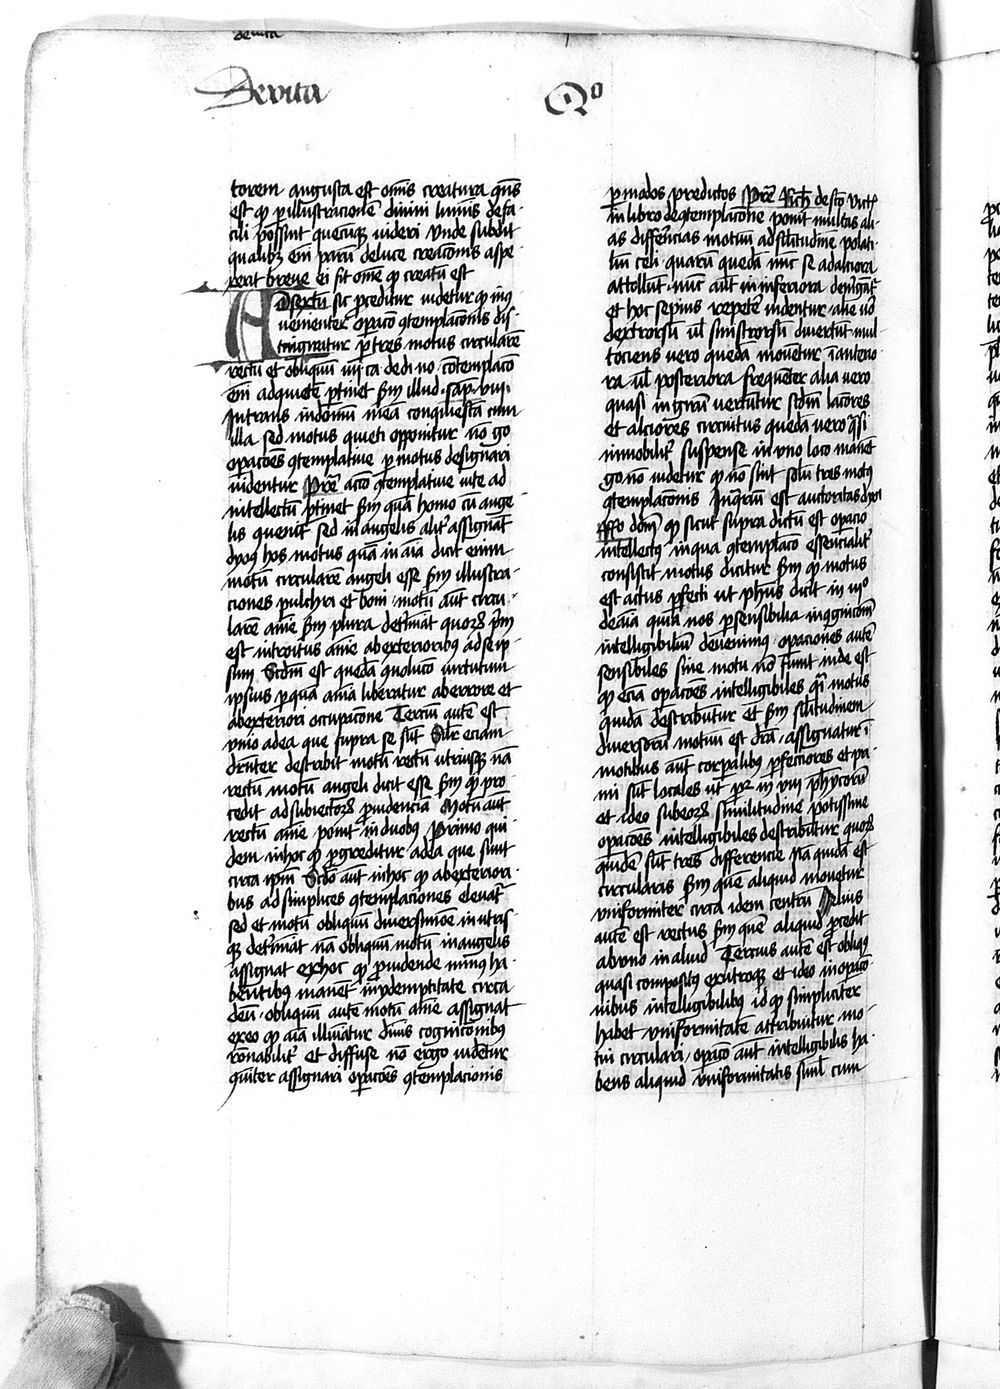 de vita
De vita Qo
torem angusta est oīs creatura qn̄s
est qd p illustracionē diuini luminis defa-
cili possint quecūq uideri vnde subdit
quālibꝫ em̄ parū deluce creatoris aspe-
xerit breue ei fit om̄e qd creatū est
Adsextū sic proceditur uidetur qd inq
uenienter opacō ꝯtemplacōnis dis-
tinguatur p tres motus circularē
rectū et obliquū ꝯtēplacō
em̄ adquietē ptinet sm illud sap. viij.
Intrans indomū meā conquiescā cum
illa sed motus quieti opponitur nō go
opacōes ꝯtemplatiue p motus designari
uidentur Pret̄e actō ꝯtemplatiue uite ad
intellectū ptinet sm quā homo cū ange-
lis quenit sed in angelis alit̄ assignat
dyoꝰ hos motus quā in aīa dicit enim
motū circularē angeli esse sm illustra-
ciones pulchri et boni. motū aūt circu-
larē aīe sm plura det̄mīat quoꝝ p̄m
est introitus aīe abexterioribus adseip-
sum Scd̄m est quedā quoluto uirtutum
ipsius p quā aīa liberatur aberrore et
abexteriori occupacōne Terciū autē est
vnio adea que supra se sūt Silr eciam
dr̄nter describit motū rectū utriusqꝫ nā
rectū motū angeli dicit esse sm qd pro-
cedit ad subiectoꝝ prudenciā Motū aūt
rectū aīe ponit induobꝰ Primo qui-
dem inhoc qd pgreditur adea que sunt
circa ipm̄ Scd̄o aūt inhoc qd abexteriori-
bus adsimplices ꝯtemplaciones eleuat̄
sed et motū obliquū diuersimōe in utris-
qꝫ det̄mīat nā obliquū motū inangelis
assignat exhoc qd puidendo minꝰ ha-
bentibꝰ manet̄ in ydemptitate circa
deū. obliquū autē motū aīe assignat
exeo qd aīa illuīatur diuīs cognicōnibꝰ
rōnabilit̄ et diffuse nō ergo uidētur
quīter assignari opacōes ꝯtemplacionis
p modos predictos Pret̄e Rich̄ de scō Vict̄e
in libro deꝯtemplacōne ponit multas ali-
as differēcias motuū adsil̄itudinē volati-
liū celi. quarū quedā nūc se adalciora
attollūt. nūc aūt in inferiora demgāt̄
et hoc sepius repeter̄ uidentur alie uō
dextrorsū ul̄ sinistrorsū diuertūt. mul-
tociens uero quedā mouētur īanterio-
ra ul̄ posteriora frequēter alia uero
quasi ingirū vertūtur scd̄m lacōres
et alciores circuitus quedā uero qsi
inmobilit̄ suspense in vno loco manēt
go nō uidetur qd nō sint solū tres motꝰ
ꝯtemplacōnis Inꝯrariū est auctoritas dyoi
Rn̄o dōm qd sicut supra dictū est opacio
intellectꝰ inqua ꝯtemplacō essēcialit̄
consistit motus dicitur sm qd motus
est actus pfecti ut ph̄us dicit in iijo
deaīa quia nos p sensibilia in ꝯgnicōm
intelligibiliū deuenimus. opaciones autē
sensibiles sine motu nō fiunt inde est
qd eciā opacōes intelligibiles qn̄ motus
quidā describūtur et sm sil̄itudinem
diuersorū motuū est dr̄ā. assignatur ī
motibus aūt corpalibꝰ pfectiores et p̄-
mi sūt locales ut pr̄ in viij phycorū
et ideo subeoꝝ similitudine potissime
opacōes intelligibiles describūtur quoꝝ
quidē sūt tres differencie Nā quidā est
circularis sm quē aliquid mouetur
vniformiter circa idem centrū Alius
autē est rectus sm quē aliquid pcedit
abvno in aliud Tercius autē est obliqꝰ
quasi compositꝰ exutroqꝫ et ideo in opacō-
nibus intelligibilibꝰ id qd simpliciter
habet vniformitatē attribuitur mo-
tui circulari. opacō aūt intelligibilis ha-
bens aliquid vniformitatis siml̄ cum